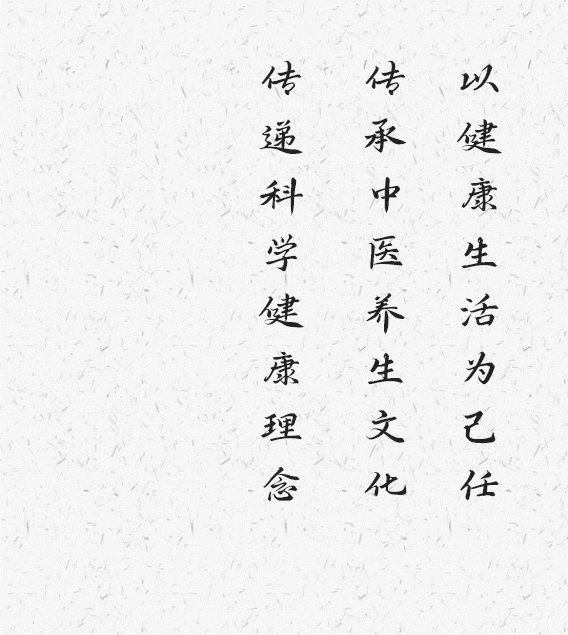 以健康生活为己任
传承中医养生文化
传递科学健康理念